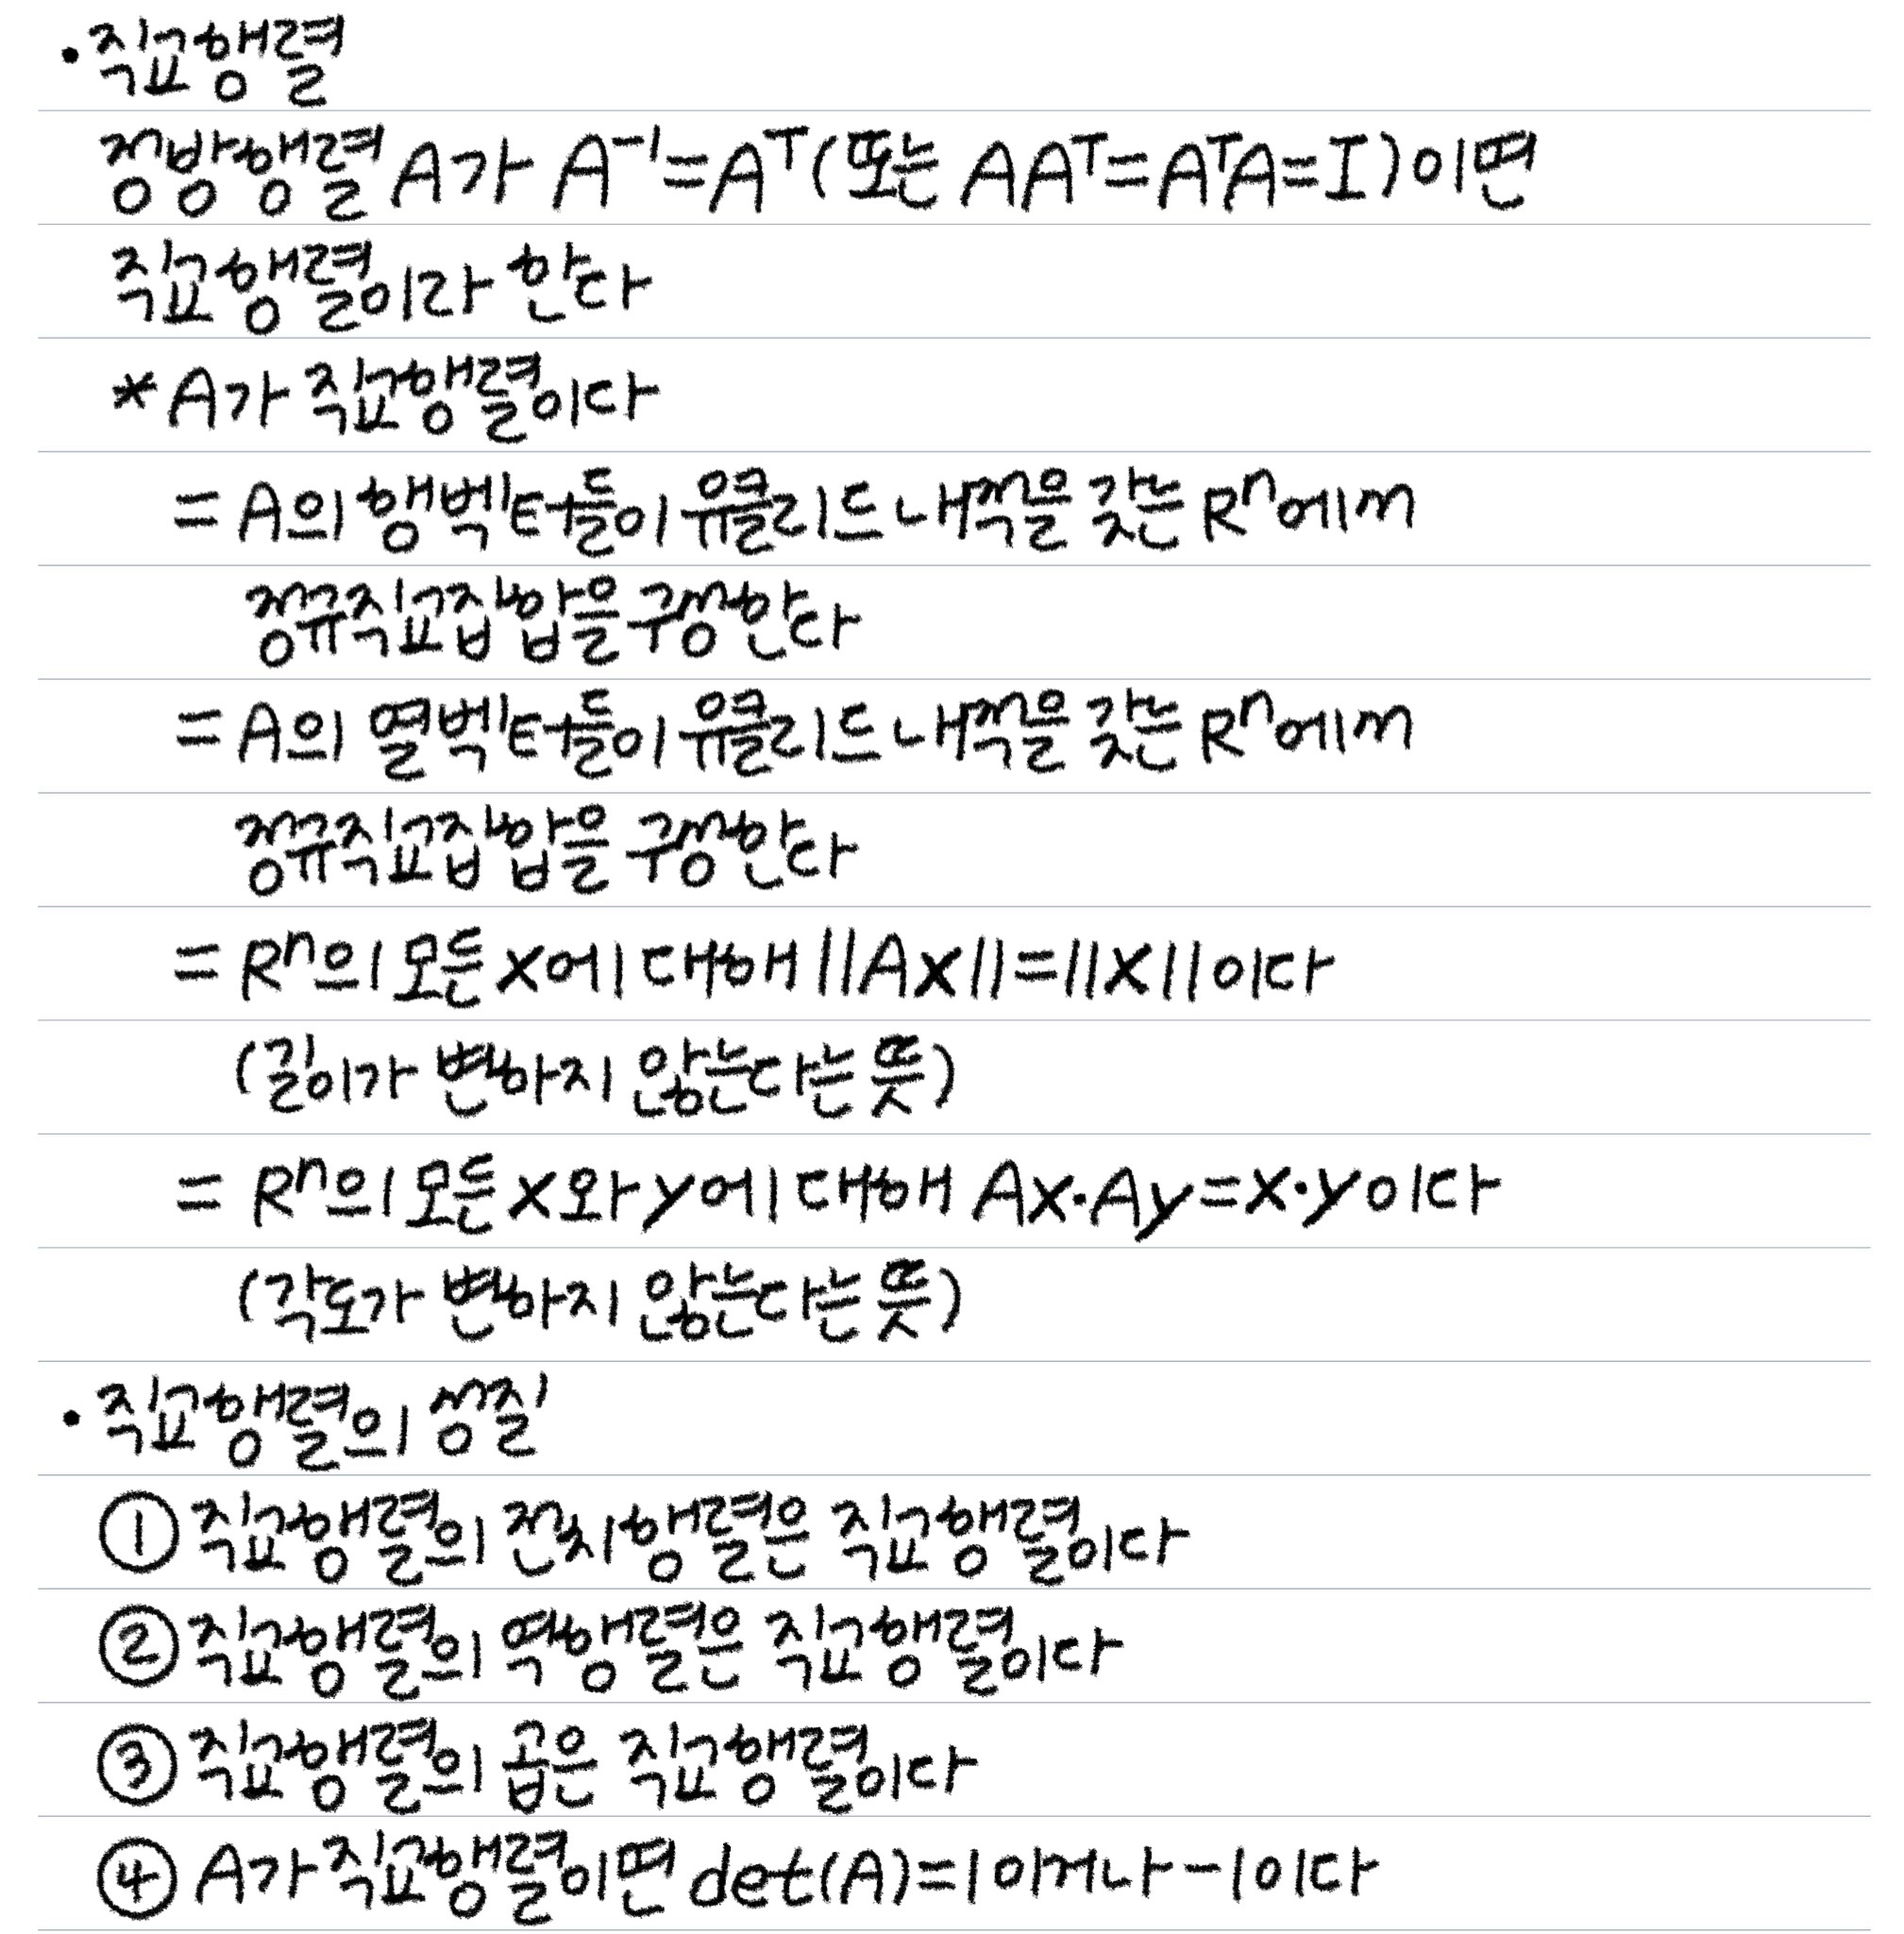 • 직교행렬
정방행렬 A가 A⁻¹=Aᵀ(또는 AAᵀ=AᵀA=I)이면
직교행렬이라 한다
*A가 직교행렬이다
= A의 행벡터들이 유클리드 내적을 갖는 Rⁿ에서
정규직교집합을 구성한다
= A의 열벡터들이 유클리드 내적을 갖는 Rⁿ에서
정규직교집합을 구성한다
= Rⁿ의 모든 x에 대해 ||Ax||=||x||이다
(길이가 변하지 않는다는 뜻)
= Rⁿ의 모든 x와 y에 대해 Ax·Ay=x·y이다
(각도가 변하지 않는다는 뜻)
• 직교행렬의 성질
① 직교행렬의 전치행렬은 직교행렬이다
② 직교행렬의 역행렬은 직교행렬이다
③ 직교행렬의 곱은 직교행렬이다
④ A가 직교행렬이면 det(A)=1이거나 -1이다